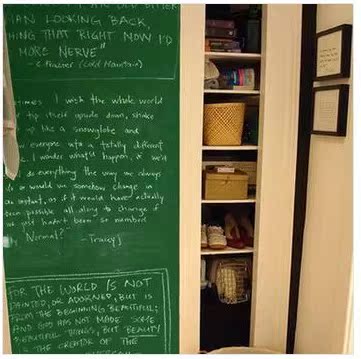 AN LOOKING BACK,
HING THAT RIGHT NOW I'D
MORE NERVE"
- C. Frazier (Cold Mountain)
times I wish the whole world
tip itself upside down, shake
up like a snowglobe and
everyone into a totally different
I wonder what'd happen, if we'd
do everything the way we always
or would we somehow change in
an instant, as if it would have actually
been possible all along to change if
we just hadn't been so numbed
by Normal?"
- Tracey J
FOR THE WORLD IS NOT
PAINTED, OR ADORNED, BUT IS
FROM THE BEGINNING BEAUTIFUL;
AND GOD HAS NOT MADE SOME
BEAUTIFUL THINGS, BUT BEAUTY
IS THE CREATOR OF THE